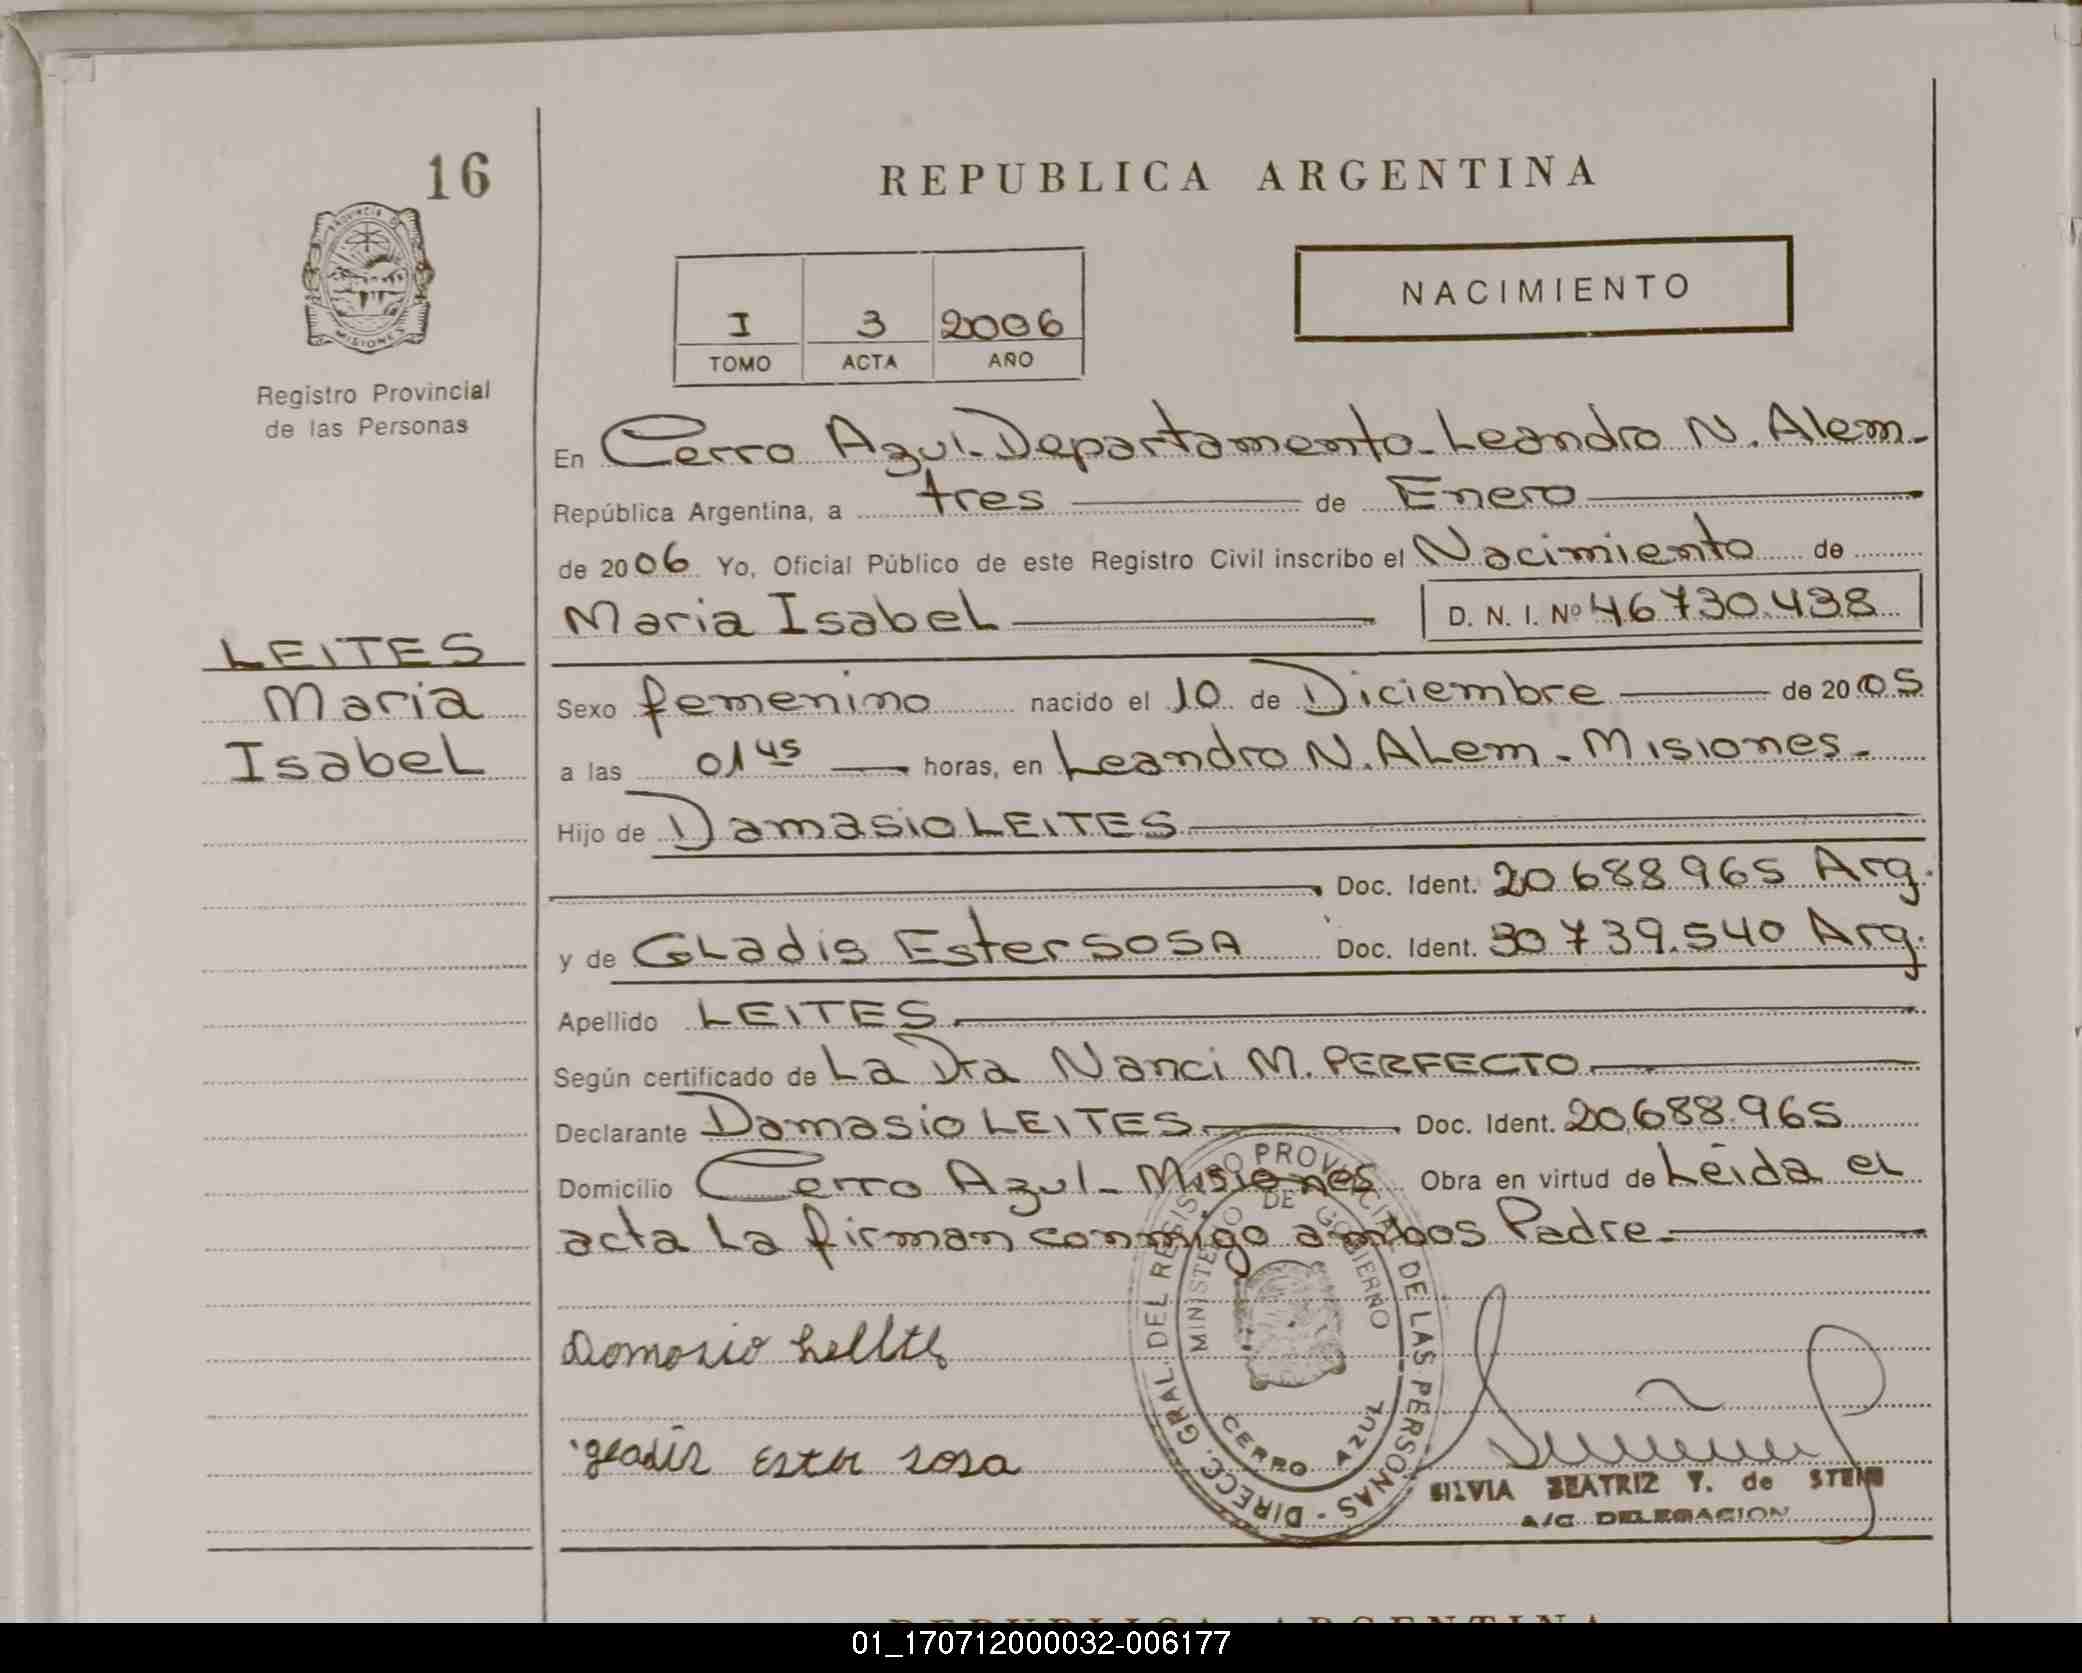 16
PROVINCIA DE
MISIONES
Registro Provincial
de las Personas
LEITES
Maria
Isabel
REPUBLICA ARGENTINA
I 3 2006
TOMO ACTA AÑO
NACIMIENTO
En Cerro Azul-Departamento-Leandro N. Alem-
República Argentina, a tres de Enero
de 2006 Yo, Oficial Público de este Registro Civil inscribo el Nacimiento de
Maria Isabel D. N. I. Nº 46730.438
Sexo femenino nacido el 10 de Diciembre de 2005
a las 01 45 horas, en Leandro N. ALem - Misiones-
Hijo de Damasio LEITES
Doc. Ident. 20 688 965 Arg.
y de GLadis Ester SOSA Doc. Ident. 30 739.540 Arg.
Apellido LEITES
Según certificado de La Dra Nanci M. PERFECTO
Declarante Damasio LEITES Doc. Ident. 20.688.965
Domicilio Cerro Azul - Misiones Obra en virtud de Leida el
acta La firman conmigo ambos Padre-
DIRECC. GRAL. DEL REGISTRO PROVINCIAL DE LAS PERSONAS -
MINISTERIO DE GOBIERNO
CERRO AZUL
gladis Ester sosa
SILVIA BEATRIZ Y. de
A/C DELEGACION
REPUBLICA ARGENTINA
01_170712000032-006177